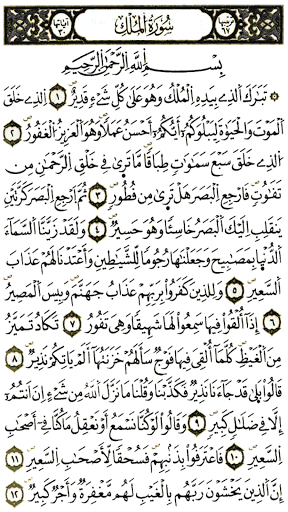 ترتيبها ٦٧ سُورَةُ المُلْكِ آياتها ٣٠
بِسْمِ اللَّهِ الرَّحْمَٰنِ الرَّحِيمِ
تَبَارَكَ الَّذِي بِيَدِهِ الْمُلْكُ وَهُوَ عَلَىٰ كُلِّ شَيْءٍ قَدِيرٌ ١ الَّذِي خَلَقَ
الْمَوْتَ وَالْحَيَوٰةَ لِيَبْلُوَكُمْ أَيُّكُمْ أَحْسَنُ عَمَلًا وَهُوَ الْعَزِيزُ الْغَفُورُ ٢
الَّذِي خَلَقَ سَبْعَ سَمَٰوَٰتٍ طِبَاقًا مَّا تَرَىٰ فِي خَلْقِ الرَّحْمَٰنِ مِن
تَفَٰوُتٍ فَارْجِعِ الْبَصَرَ هَلْ تَرَىٰ مِن فُطُورٍ ٣ ثُمَّ ارْجِعِ الْبَصَرَ كَرَّتَيْنِ
يَنقَلِبْ إِلَيْكَ الْبَصَرُ خَاسِئًا وَهُوَ حَسِيرٌ ٤ وَلَقَدْ زَيَّنَّا السَّمَاءَ
الدُّنْيَا بِمَصَٰبِيحَ وَجَعَلْنَٰهَا رُجُومًا لِّلشَّيَٰطِينِ وَأَعْتَدْنَا لَهُمْ عَذَابَ
السَّعِيرِ ٥ وَلِلَّذِينَ كَفَرُوا بِرَبِّهِمْ عَذَابُ جَهَنَّمَ وَبِئْسَ الْمَصِيرُ
٦ إِذَا أُلْقُوا فِيهَا سَمِعُوا لَهَا شَهِيقًا وَهِيَ تَفُورُ ٧ تَكَادُ تَمَيَّزُ
مِنَ الْغَيْظِ كُلَّمَا أُلْقِيَ فِيهَا فَوْجٌ سَأَلَهُمْ خَزَنَتُهَا أَلَمْ يَأْتِكُمْ نَذِيرٌ ٨
قَالُوا بَلَىٰ قَدْ جَاءَنَا نَذِيرٌ فَكَذَّبْنَا وَقُلْنَا مَا نَزَّلَ اللَّهُ مِن شَيْءٍ إِنْ أَنتُمْ
إِلَّا فِي ضَلَٰلٍ كَبِيرٍ ٩ وَقَالُوا لَوْ كُنَّا نَسْمَعُ أَوْ نَعْقِلُ مَا كُنَّا فِي أَصْحَٰبِ
السَّعِيرِ ١٠ فَاعْتَرَفُوا بِذَنبِهِمْ فَسُحْقًا لِّأَصْحَٰبِ السَّعِيرِ ١١
إِنَّ الَّذِينَ يَخْشَوْنَ رَبَّهُم بِالْغَيْبِ لَهُم مَّغْفِرَةٌ وَأَجْرٌ كَبِيرٌ ١٢